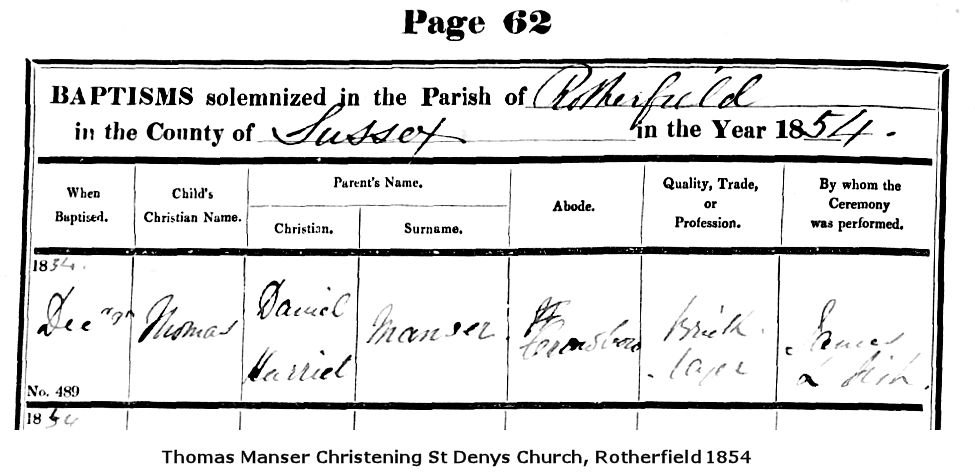 Page 62
BAPTISMS solemnized in the Parish of Rotherfield
in the County of Sussex in the Year 1854.
When Baptised.
Child's Christian Name.
Parent's Name.
Christian.
Surname.
Abode.
Quality, Trade, or Profession.
By whom the Ceremony was performed.
1854.
Dec
Thomas
Daniel
Harriet
Manser
Brick
layer
James
No. 489
1854
Thomas Manser Christening St Denys Church, Rotherfield 1854